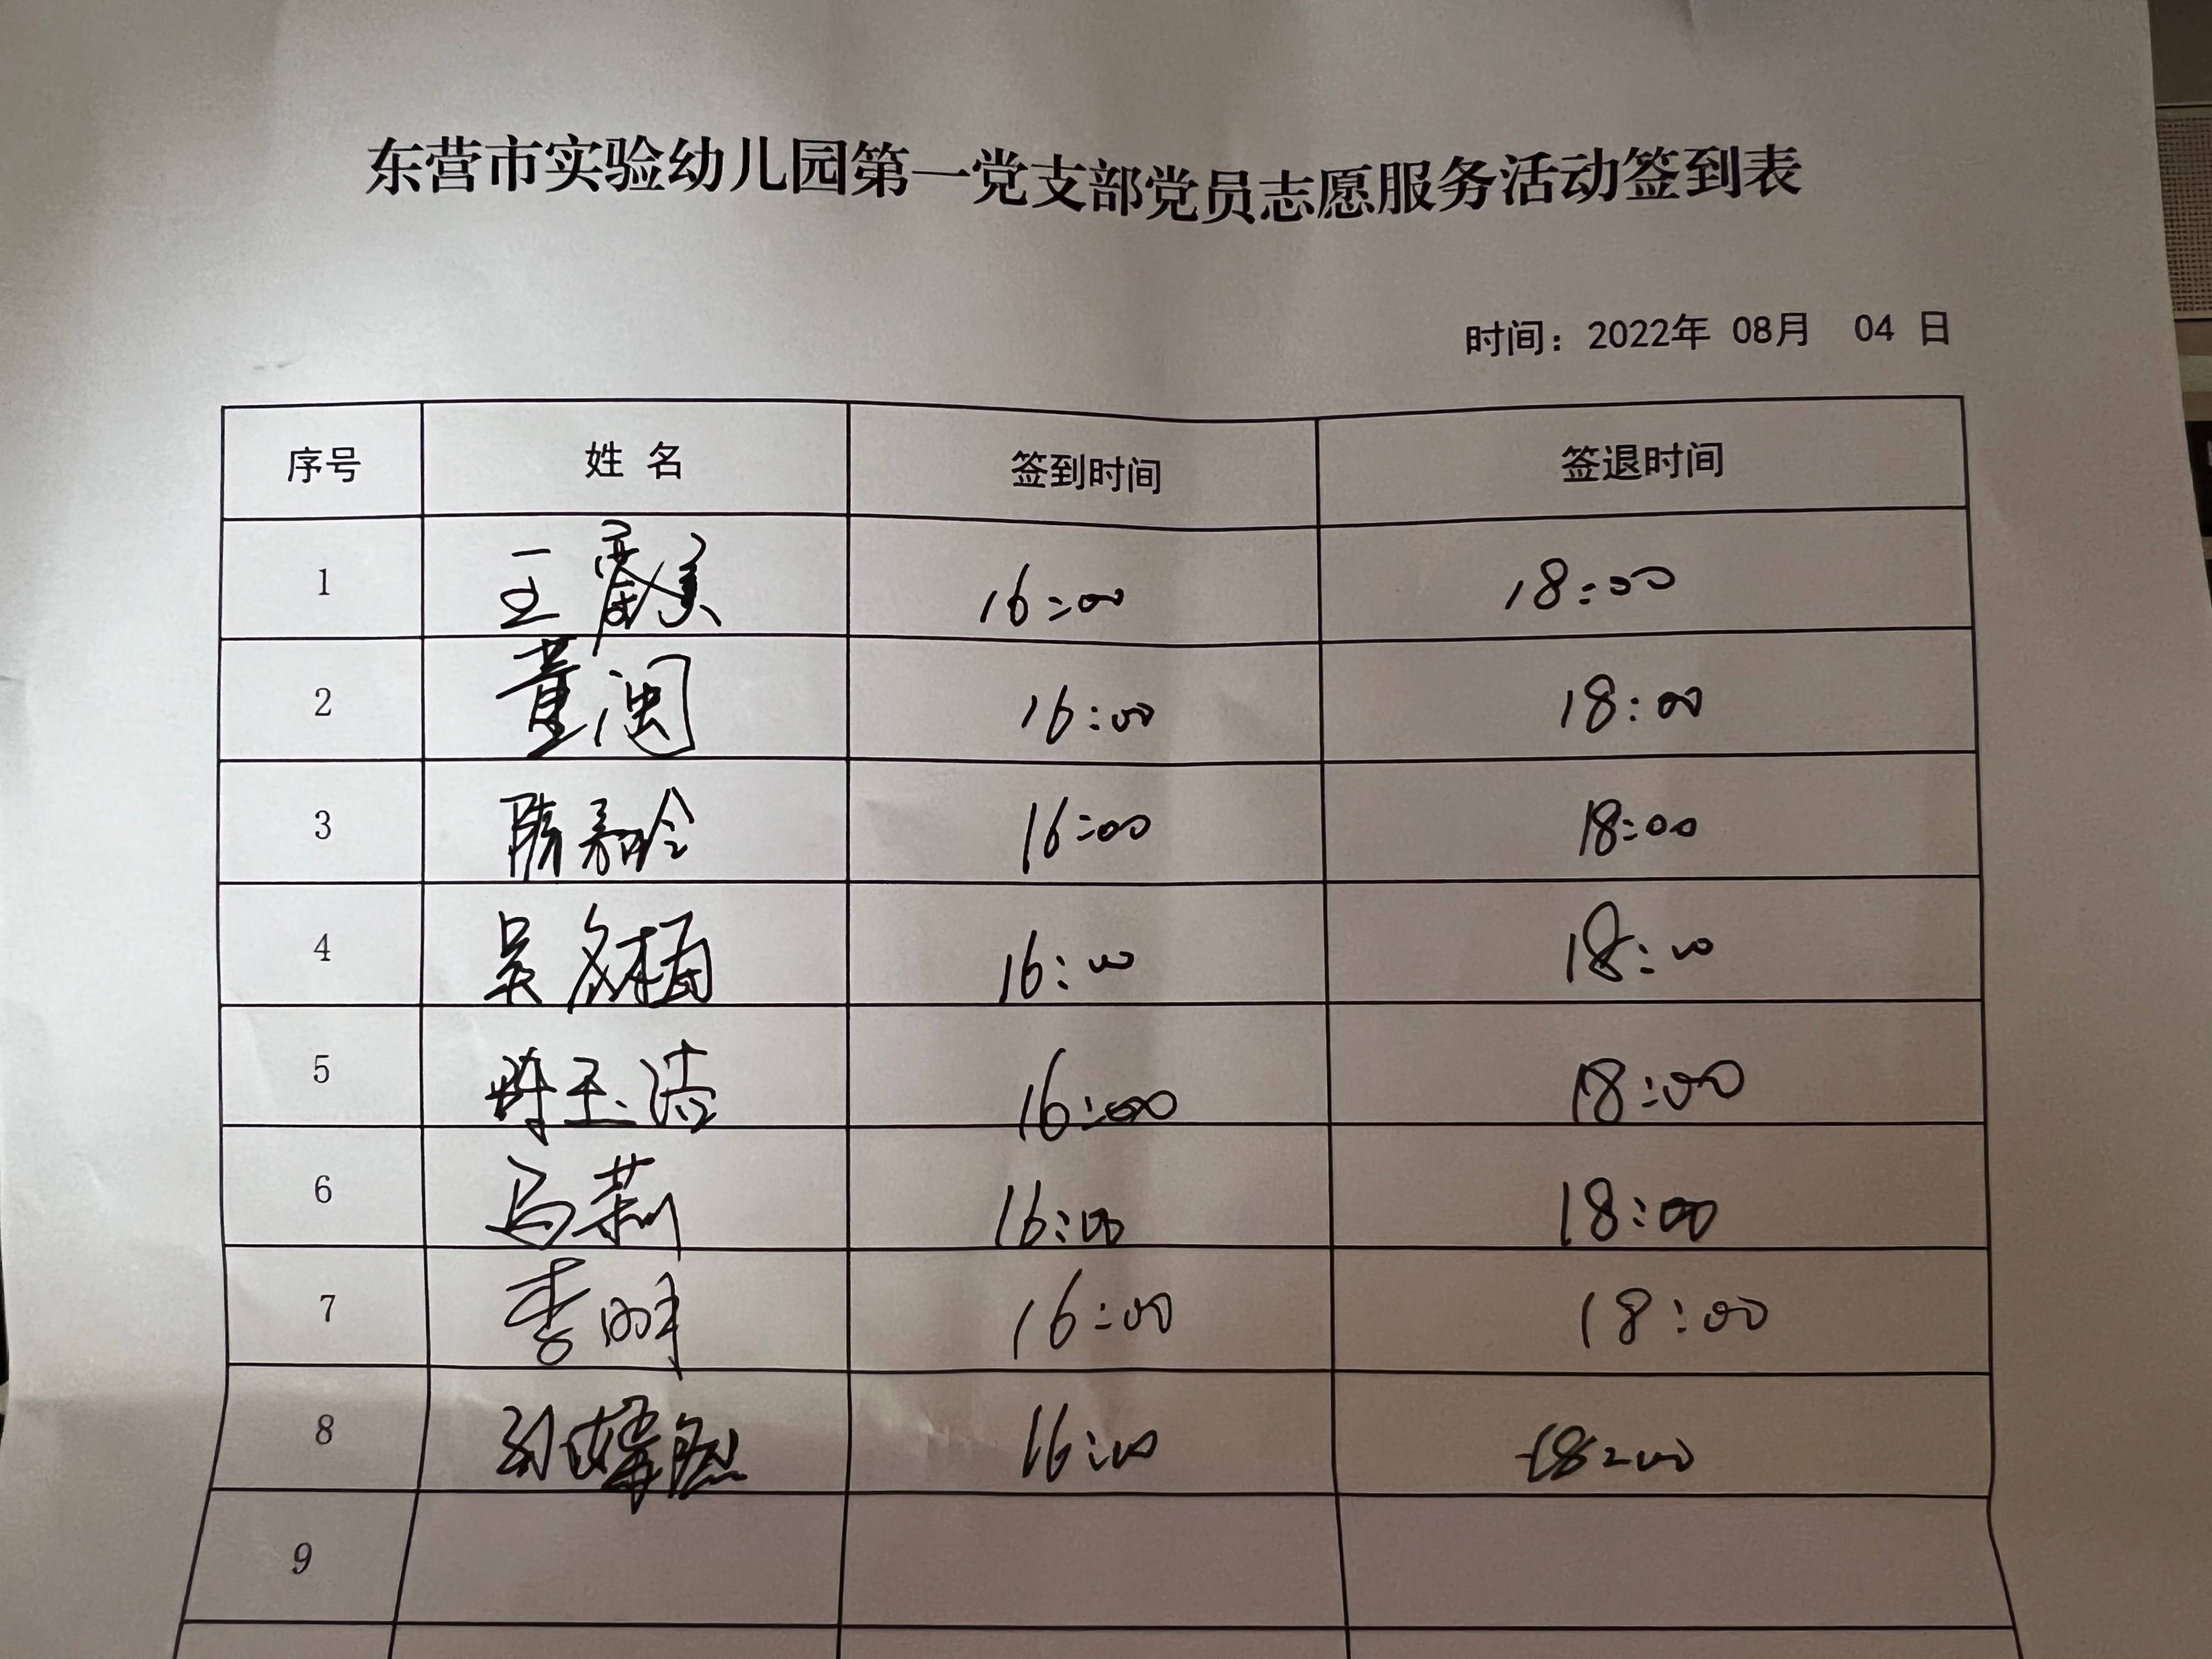 东营市实验幼儿园第一党支部党员志愿服务活动签到表
时间：2022年 08月 04 日
序号 姓名 签到时间 签退时间
1 王霞美 16:00 18:00
2 董闽 16:00 18:00
3 隋嘉晗 16:00 18:00
4 吴 16:00 18:00
5 玉洁 16:00 18:00
6 马莉 16:00 18:00
7 李明 16:00 18:00
8 16:00 18:00
9